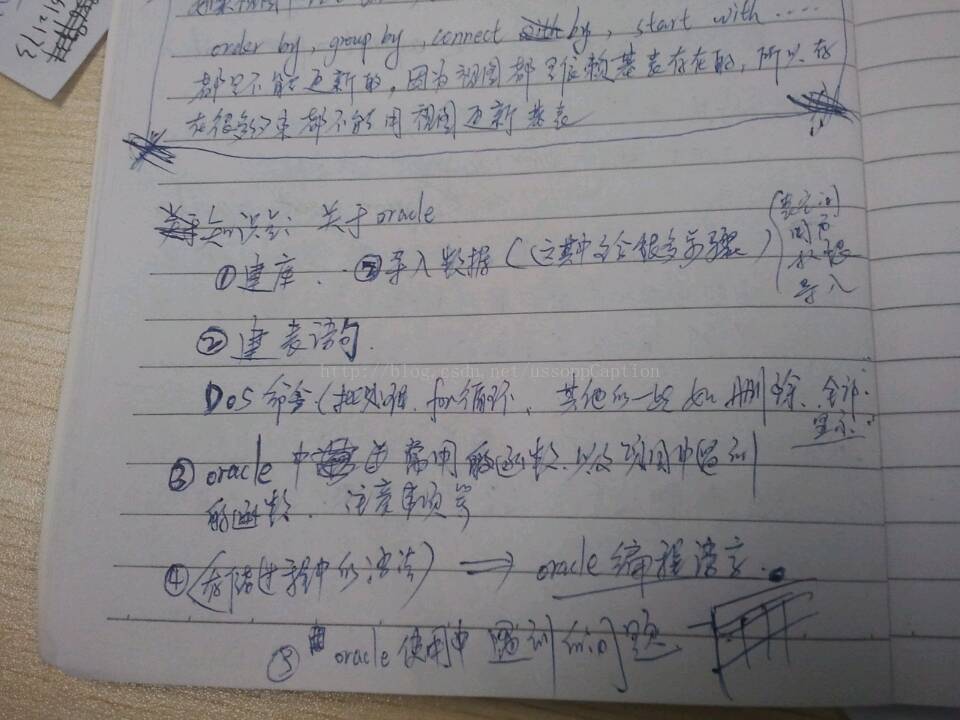 order by, group by, connect by, start with ....
都是不能更新的, 因为视图都是依赖基表存在的, 所以存
在很多约束都不能用视图更新基表
知识点: 关于oracle
①建库. ⑦导入数据(这其中包含很多步骤)
(表空间
用户
权限
导入
②建表语句.
http://blog.csdn.net/ussoppCaption
DOS命令(批处理. for循环. 其他的一些如删除. 全部.
显示.
③oracle中常用的函数. 以及项目中遇到
的函数. 注意事项等
④(存储过程中的语法) ⇒ oracle编程语言.
⑤oracle使用中遇到的问题.